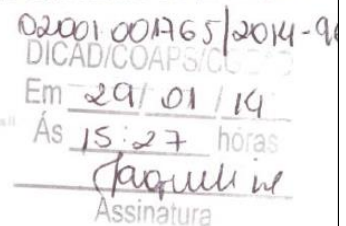 02001.001765/2014-9
DICAD/COAPS/
Em 29/01/14
Ás 15:27 horas
Jaqueline
Assinatura